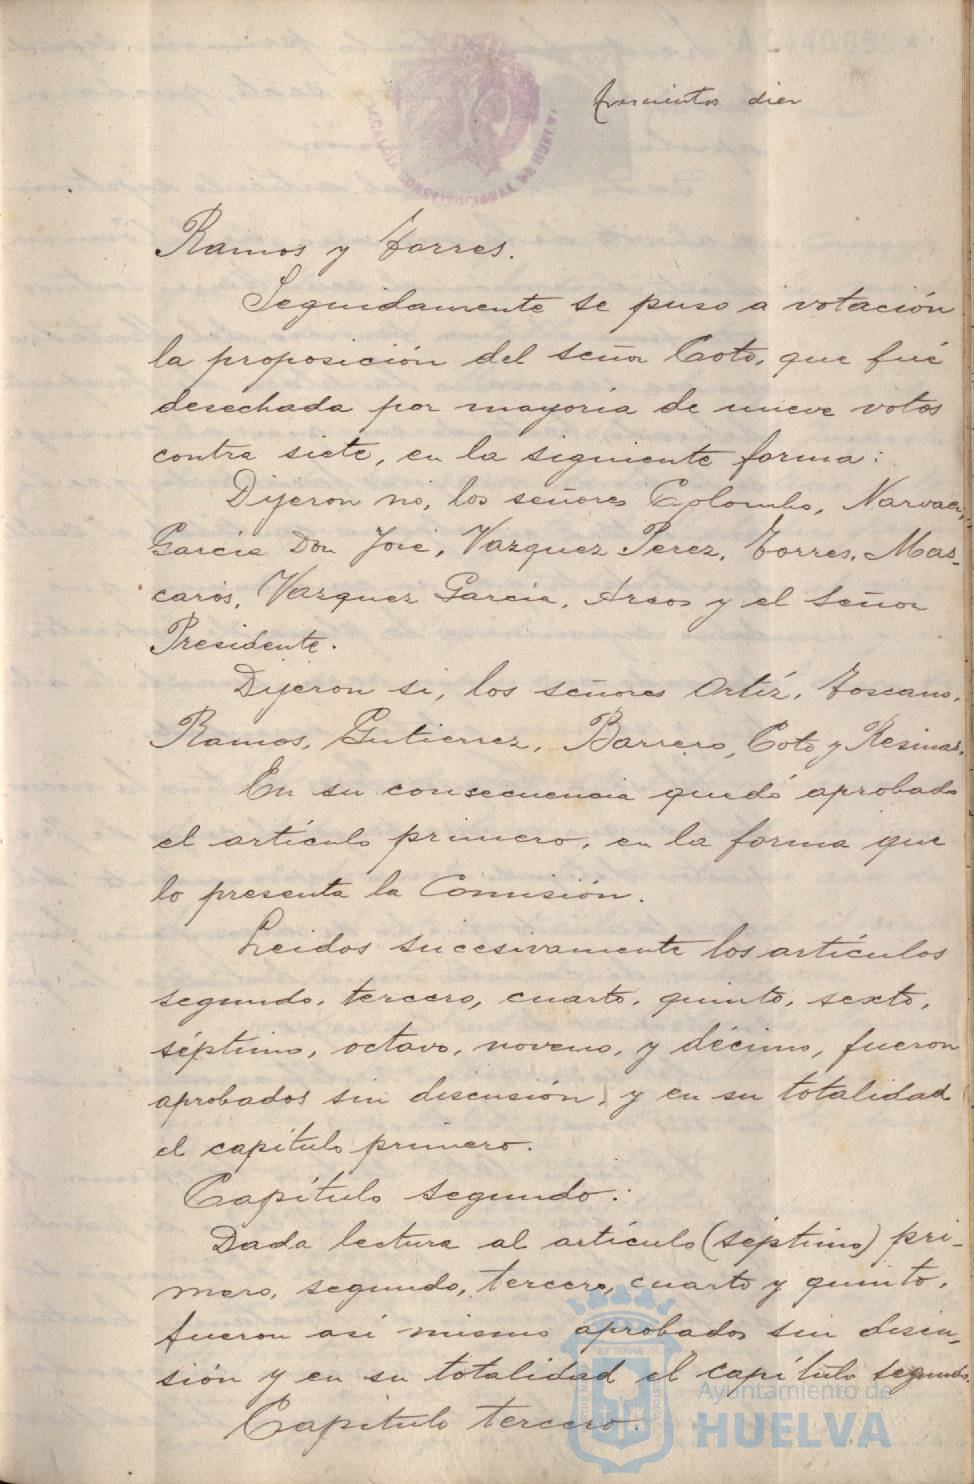 trescientos diez
ALCALDIA CONSTITUCIONAL DE HUELVA
Ramos y Torres.
Seguidamente se puso a votación
la proposición del señor Coto, que fué
desechada por mayoria de nueve votos
contra siete, en la siguiente forma:
Dijeron no, los señores Colombo, Narvaez,
Garcia Don José, Vazquez Perez, Torres, Mas-
carós, Vazquez Garcia, Arcos y el Señor
Presidente.
Dijeron si, los señores Ortíz, Toscano,
Ramos, Gutierrez, Barrero, Coto y Resinas.
En su consecuencia quedó aprobado
el artículo primero, en la forma que
lo presenta la Comisión.
Leidos sucesivamente los artículos
segundo, tercero, cuarto, quinto, sexto,
séptimo, octavo, noveno, y décimo, fueron
aprobados sin discusión, y en su totalidad
el capítulo primero.
Capítulo segundo.:
Dada lectura al artículo (séptimo) pri-
mero, segundo, tercero, cuarto y quinto,
fueron así mismo aprobados sin discu-
sión y en su totalidad el capítulo segundo.
Capitulo tercero.
ET TERRÆ
Ayuntamiento de
HUELVA